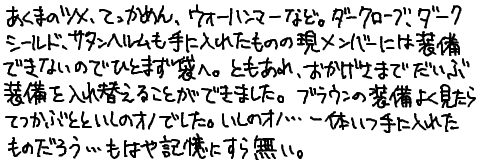 あくまのツメ、てっかめん、ウォーハンマーなど。ダークローブ、ダーク
シールド、サタンヘルムも手に入れたものの現メンバーには装備
できないのでひとまず袋へ。ともあれ、おかげさまでだいぶ
装備を入れ替えることができました。ブラウンの装備よく見たら
てつかぶとといしのオノでした。いしのオノ…一体いつ手に入れた
ものだろう…もはや記憶にすら無い。